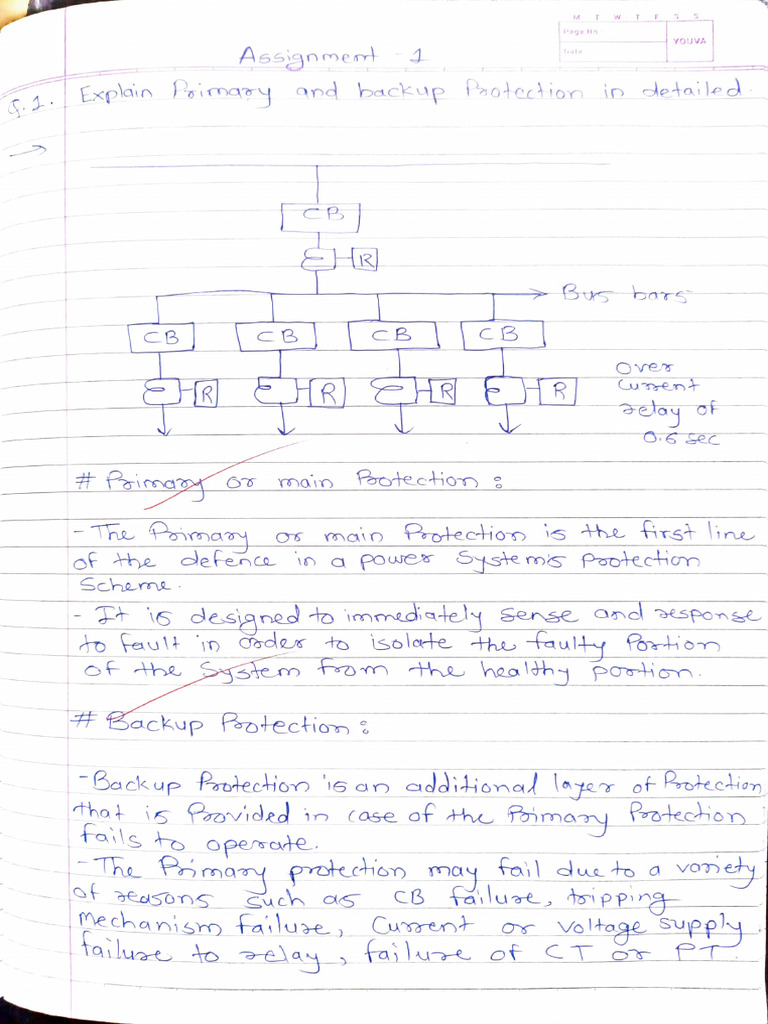 M T W T F S S
Page No.:
Date:
YOUVA
Assignment - 1
Q.1. Explain Primary and backup Protection in detailed.
→
CB
R
Bus bars
CB CB CB CB
R R R R
Over
Current
relay of
0.6 sec
# Primary or main Protection :
- The Primary or main Protection is the first line
of the defence in a power System's protection
Scheme.
- It is designed to immediately sense and response
to fault in order to isolate the faulty Portion
of the System from the healthy portion.
# Backup Protection :
- Backup Protection is an additional layer of Protection
that is Provided in case of the Primary Protection
fails to operate.
- The Primary protection may fail due to a variety
of reasons such as CB failure, tripping
mechanism failure, Current or voltage supply
failure to relay, failure of CT or PT.